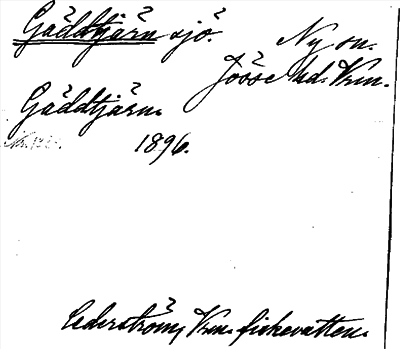 Gäddtjärn sjö.
Ny sn.
Jösse hd. Vrm.
Gäddtjärn.
1896.
Cederström, Vrm. fiskevatten.